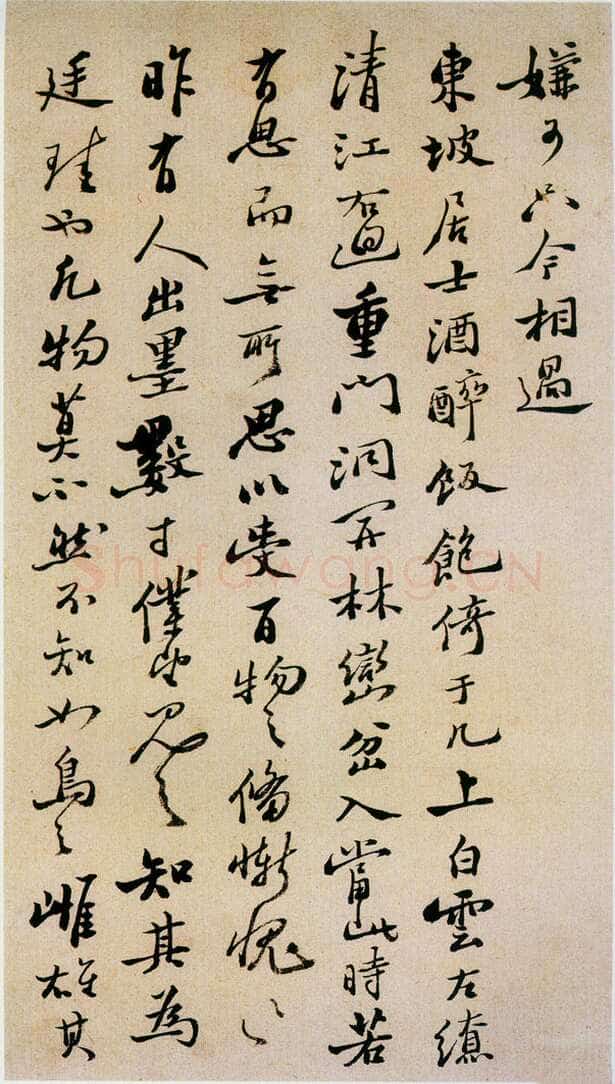 嫌只今相過
東坡居士酒醉飯飽倚于几上白雲左繚
清江右迴重門洞開林巒坌入當此時若
有思而無所思以受百物之備慚愧〻
昨有人出墨數寸僕望見之知其為
廷珪也凡物莫不然不知如烏之雌雄其
Shufawang.CN